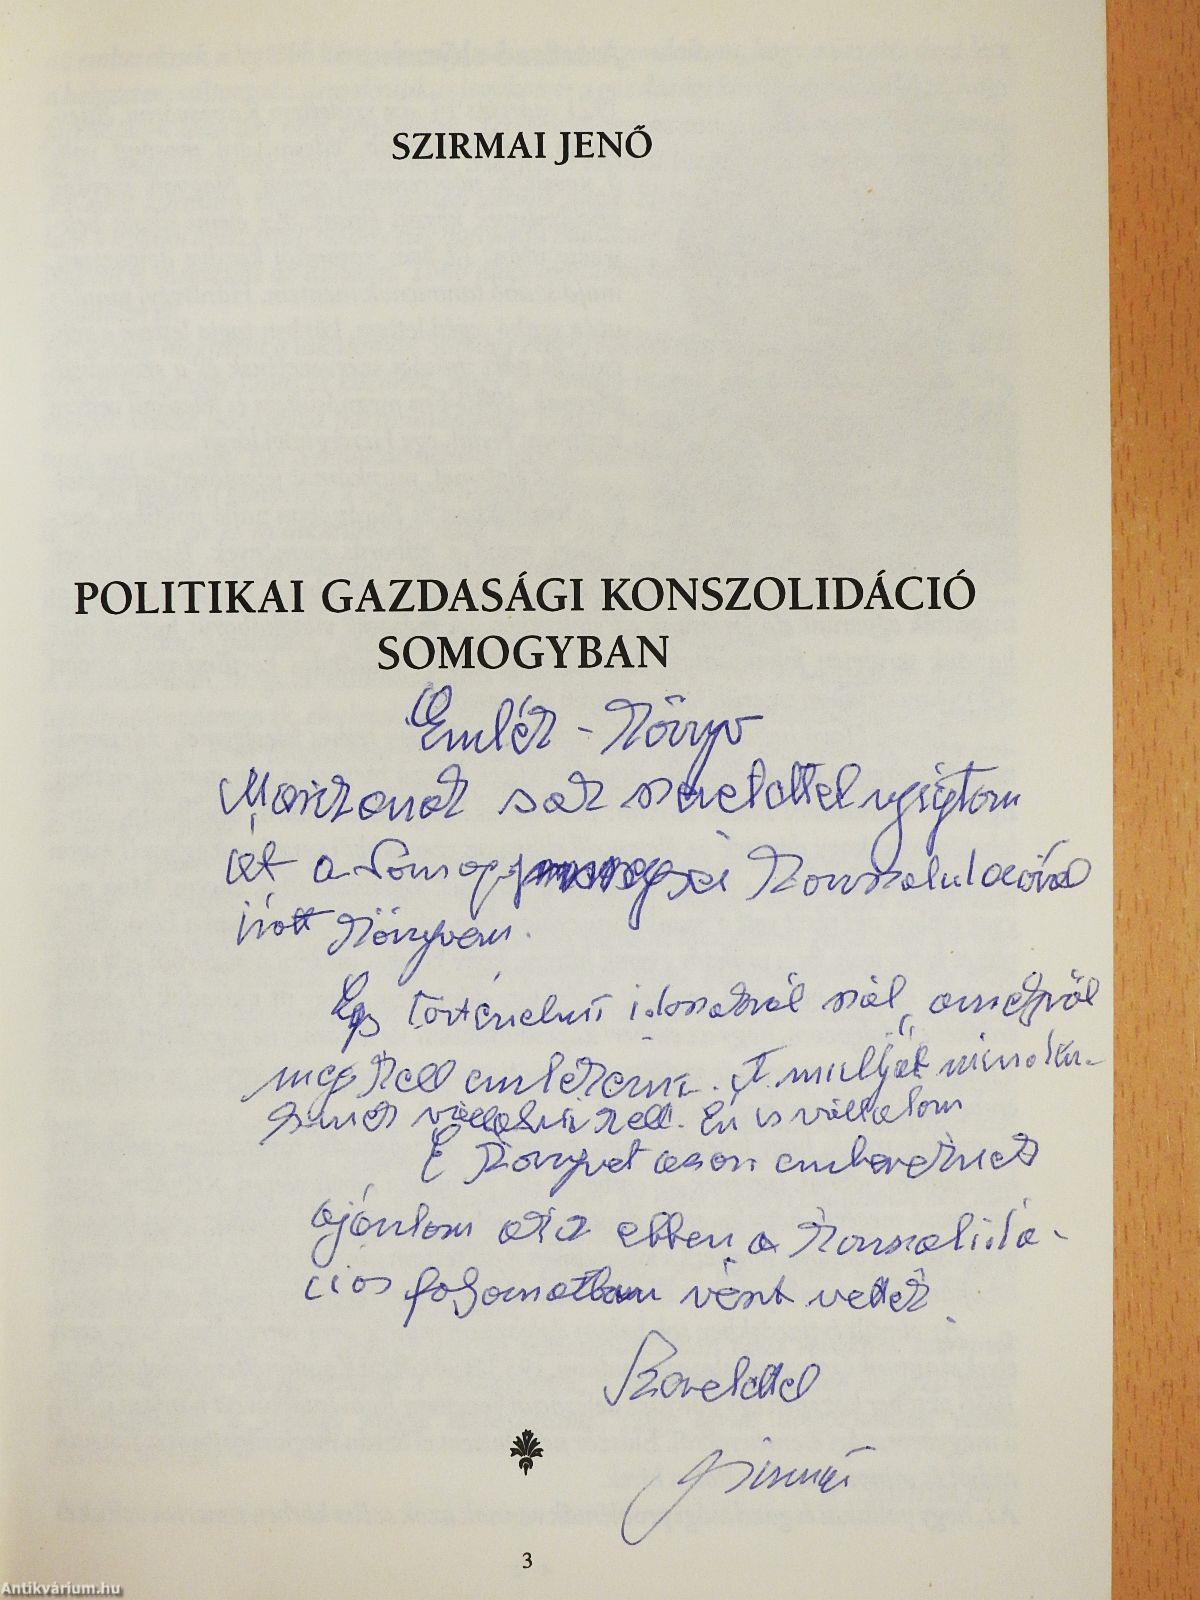 SZIRMAI JENŐ
POLITIKAI GAZDASÁGI KONSZOLIDÁCIÓ
SOMOGYBAN
Emlék - Könyv
sok szeretettel nyújtom
át a Somogy Konszolidációról
írott Könyvem.
Egy történelmi időszakról szól, amelyről
meg kell emlékezni. A múltját minden-
kinek vállalni kell. Én is vállalom
E Könyvet azon embereknek
ajánlom akik ebben a Konszolidá-
ciós folyamatban részt vettek.
Szeretettel
Szirmai
3
Antikvárium.hu